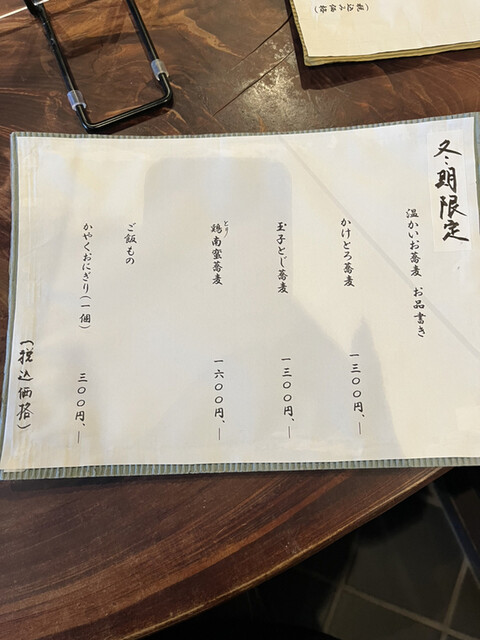 冬期限定
温かいお蕎麦 お品書き
かけとろ蕎麦 一三００円、―
玉子とじ蕎麦 一三００円、―
鶏南蛮蕎麦 一六００円、―
とり
ご飯もの
かやくおにぎり（一個） 三００円、―
（税込価格）
（税込み価格）